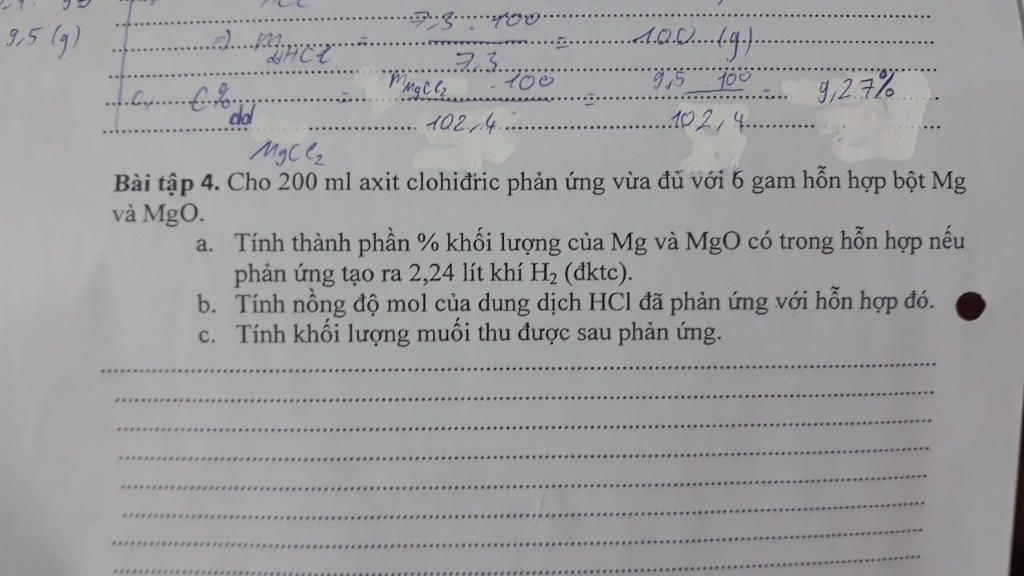 9,5 (g)
7,3 . 100
=> m ddHCl = 7,3 = 100 (g)
m MgCl2 . 100 9,5 . 100
c, C% dd = 102,4 = 102,4 = 9,27%
MgCl2
Bài tập 4. Cho 200 ml axit clohiđric phản ứng vừa đủ với 6 gam hỗn hợp bột Mg
và MgO.
a. Tính thành phần % khối lượng của Mg và MgO có trong hỗn hợp nếu
phản ứng tạo ra 2,24 lít khí H₂ (đktc).
b. Tính nồng độ mol của dung dịch HCl đã phản ứng với hỗn hợp đó.
c. Tính khối lượng muối thu được sau phản ứng.